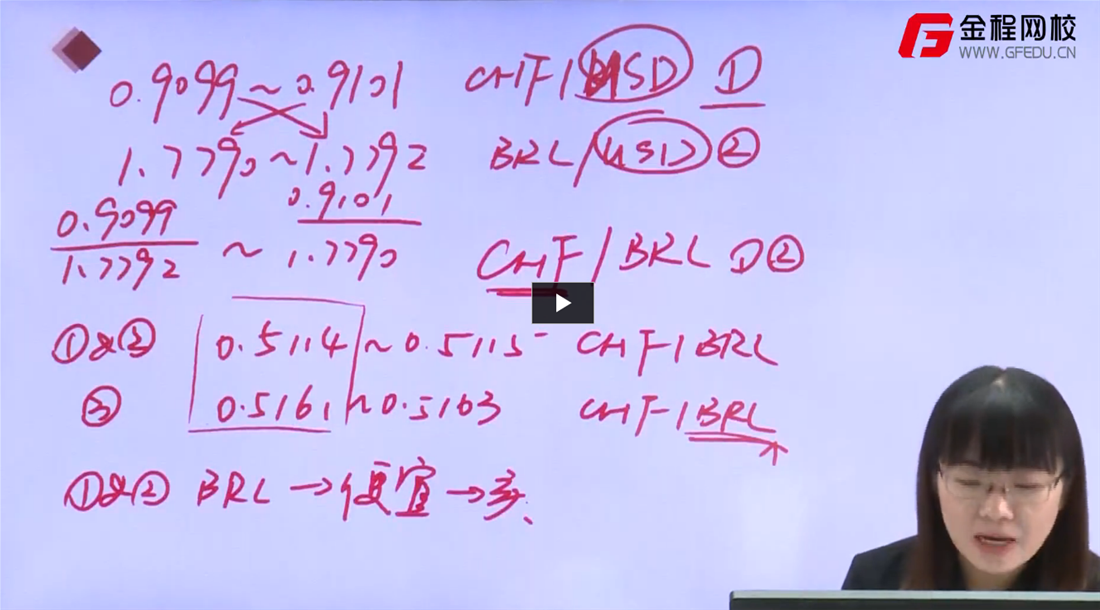 金程网校
WWW.GFEDU.CN
0.9099 ~ 0.9101 CHF/USD ①
1.7790 ~ 1.7792 BRL/USD ②
0.9099 0.9101
1.7792 ~ 1.7790 CHF/BRL ①②
①&② 0.5114 ~ 0.5115 CHF/BRL
③ 0.5161 ~ 0.5163 CHF/BRL
①&② BRL → 便宜 →